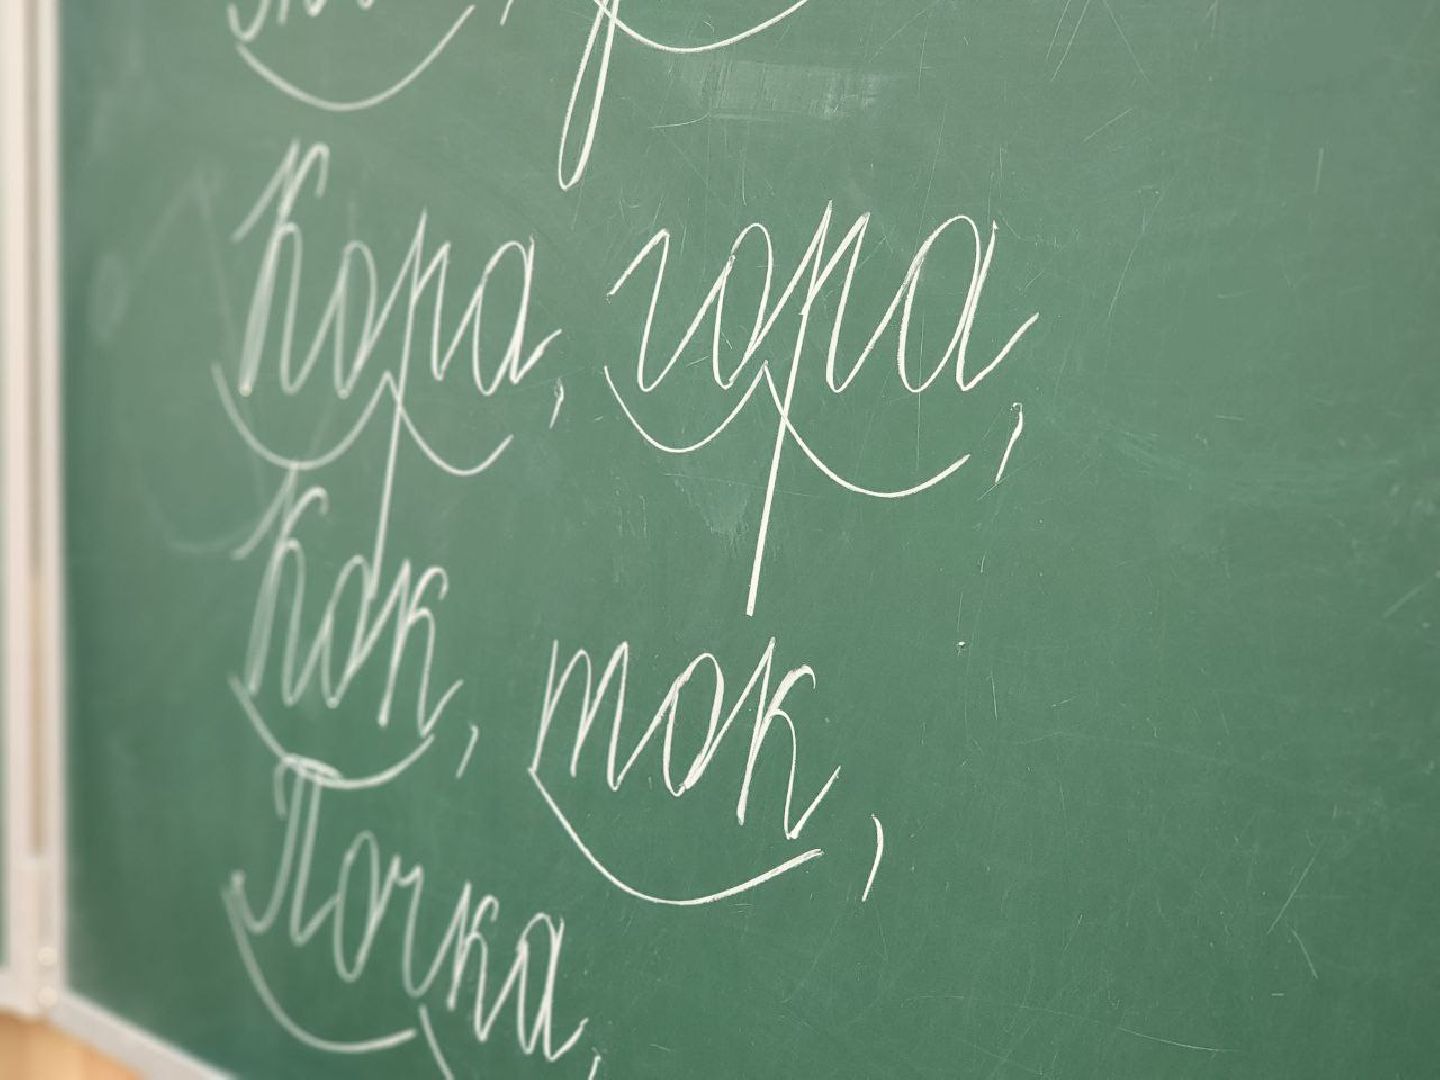 Кора, гора,
Кок, ток,
Почка,